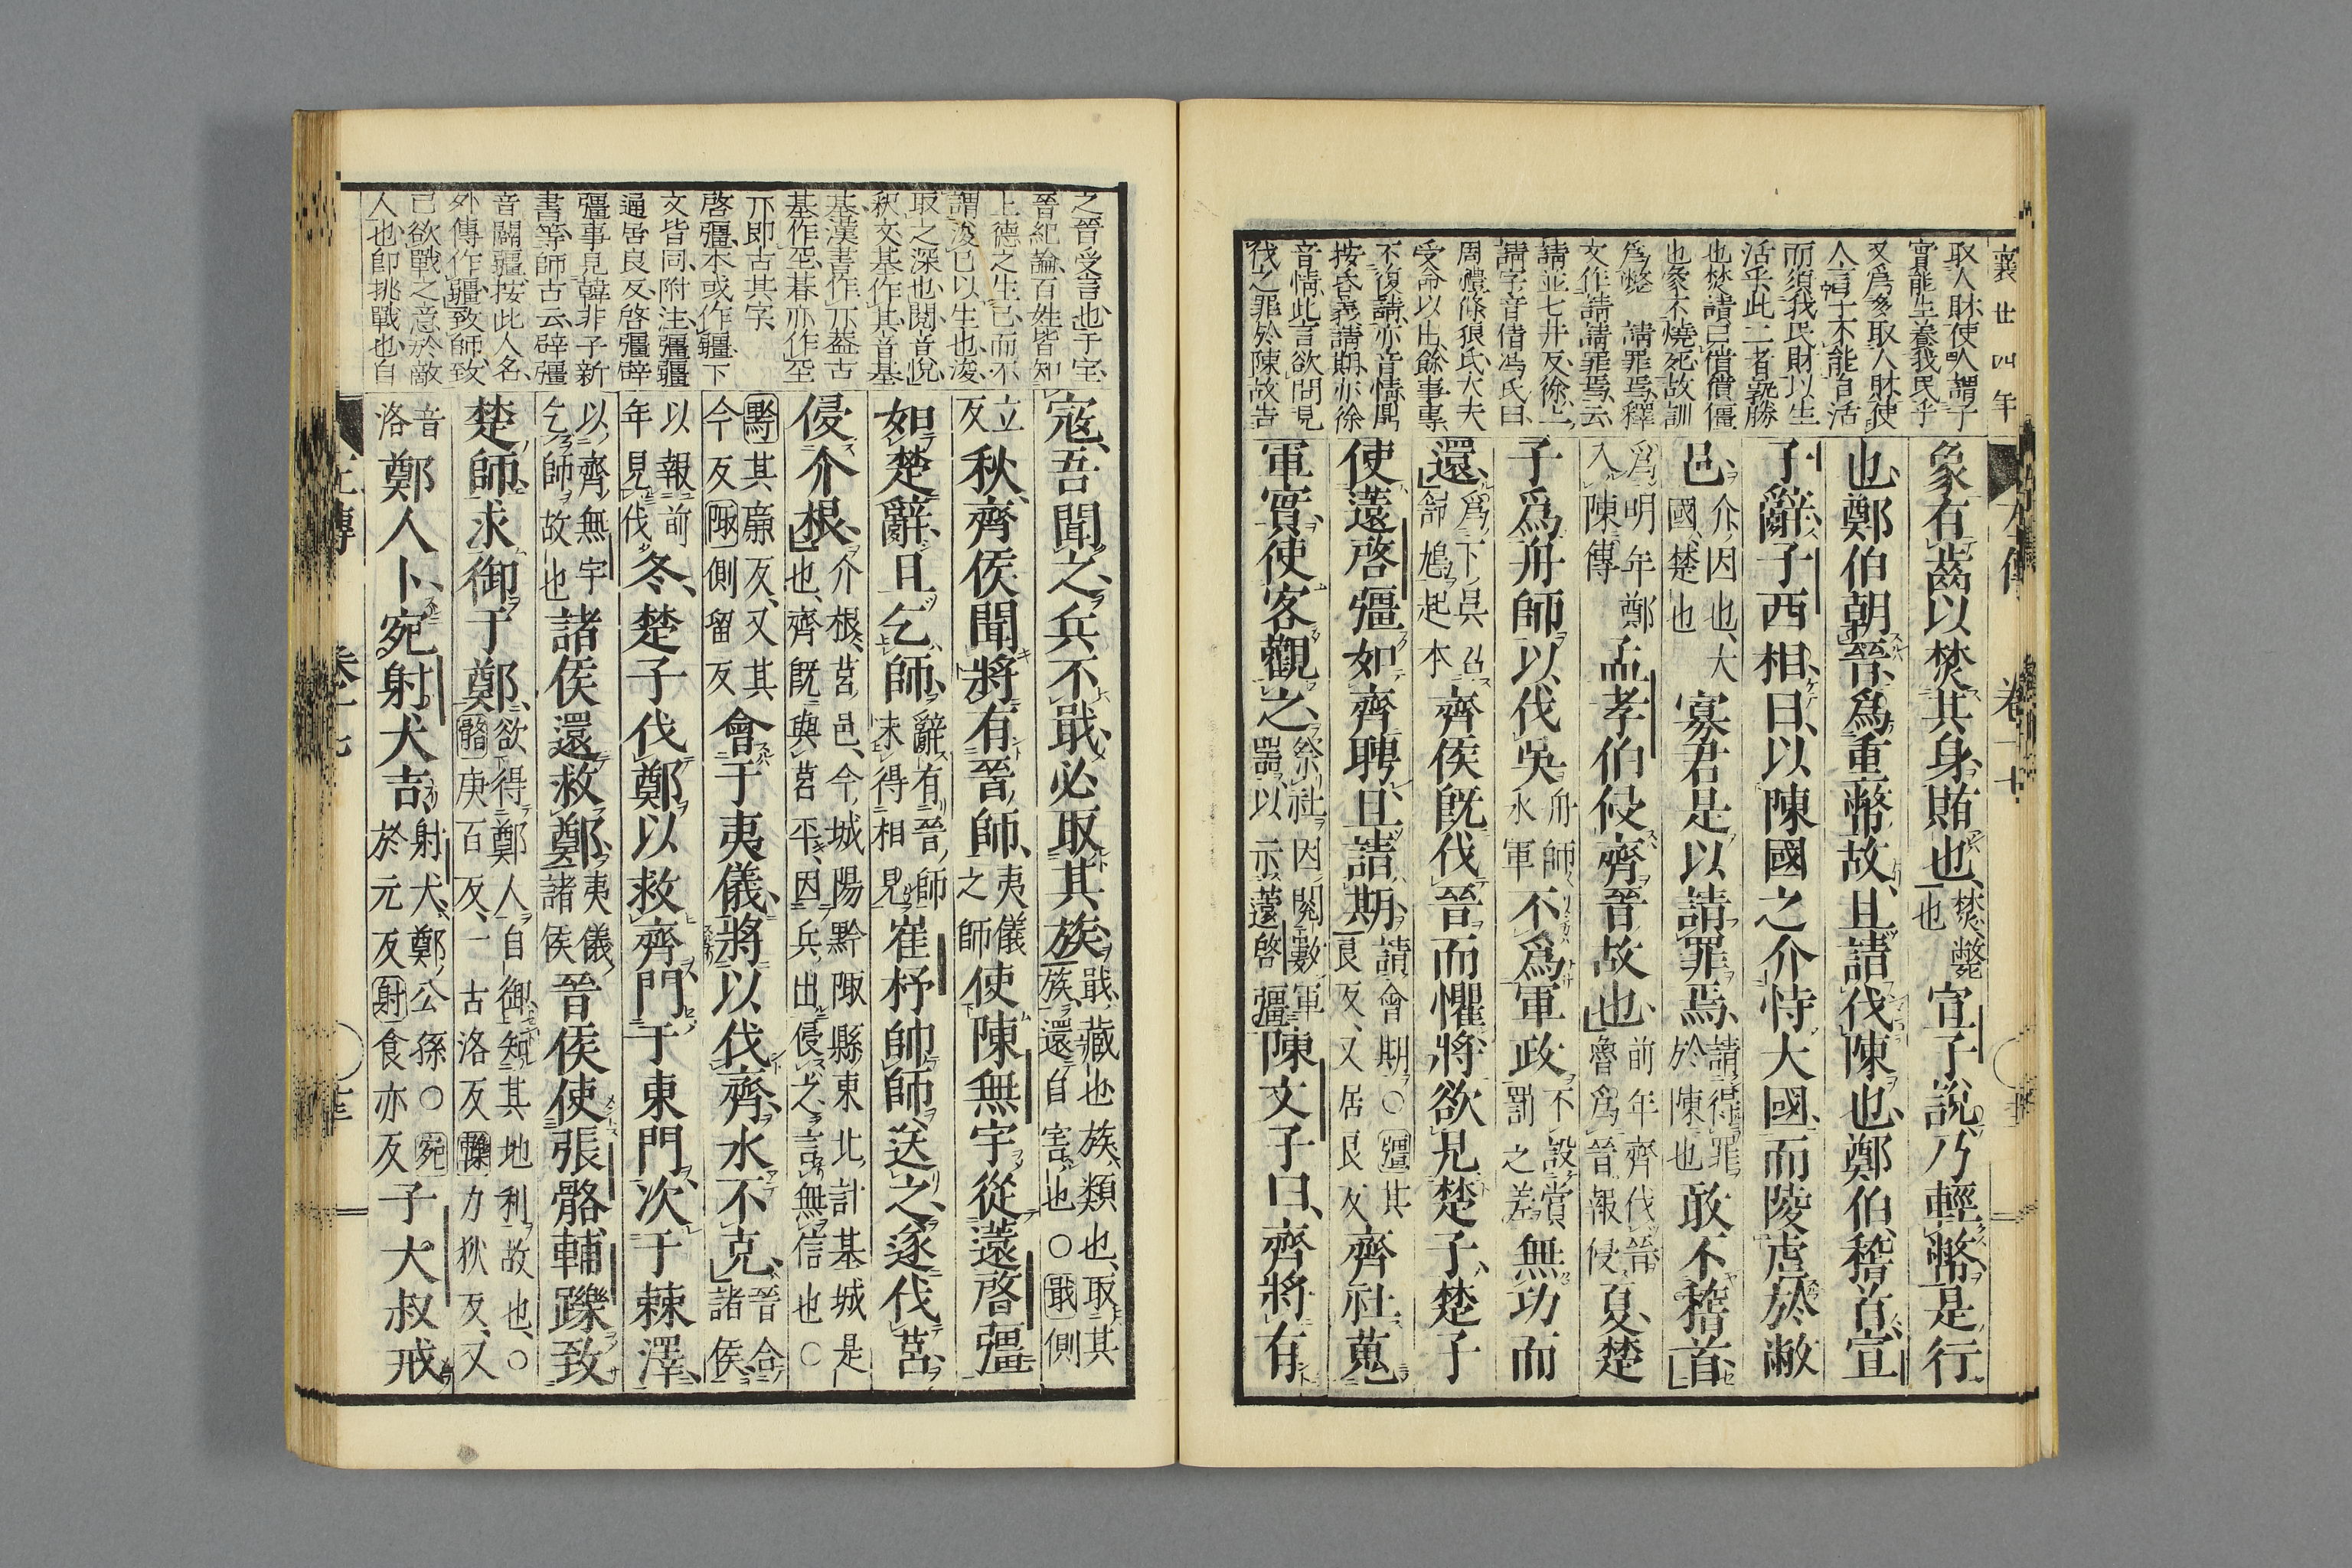 襄廿四年
取人財使人謂子
實能生養我民乎
又爲多取人財使
人言子不能自活
而須我民財以生
活乎此二者孰勝
也焚請曰僨僨僵
也象不燒死故訓
爲斃 請罪焉釋
文作請請罪焉云
請並七井反徐上
請字音情馮氏曰
周禮條狼氏大夫
受命以出餘事專
不復請亦音情禺
按昏義請期亦徐
音情此言欲問見
伐之罪於陳故告
象有齒以焚其身賄也焚斃也宣子說乃輕幣是行
也鄭伯朝晉爲重幣故且請伐陳也鄭伯稽首宣
子辭子西相曰以陳國之介恃大國而陵虐於敝
邑介因也大國楚也寡君是以請罪焉請得罪於陳也敢不稽首
爲明年鄭入陳傳孟孝伯侵齊晉故也前年齊伐晉魯爲晉報侵夏楚
子爲舟師以伐吳舟師水軍不爲軍政不設賞罰之差無功而
還爲下吳召舒鳩起本齊侯既伐晉而懼將欲見楚子楚子
使薳啓彊如齊聘且請期請會期○彊其良反又居良反齊社蒐
軍實使客觀之祭社因閱數軍器以示薳啓彊陳文子曰齊將有
之晉受言也于寳
晉紀論百姓皆知
上德之生已而不
謂浚已以生也浚
取之深也閱音悅
釈文基作其音基
基漢書作丌葢古
基作至朞亦作至
丌即古其字
啓彊本或作疆下
文皆同附注彊疆
通居良反啓彊辟
彊事見韓非子新
書等師古云辟彊
音闢疆按此人名
外傳作疆致師致
已欲戰之意於敵
人也卽挑戰也自
寇吾聞之兵不戢必取其族戢藏也族類也取其族還自害也○戢側
立反秋齊侯聞將有晉師夷儀之師使陳無宇從薳啓彊
如楚辭且乞師辭有晉師未得相見崔杼帥師送之遂伐莒
侵介根介根莒邑今城陽黔陬縣東北計基城是也齊既與莒平因兵出侵之言無信也○
黔其廉反又其今反陬側留反會于夷儀將以伐齊水不克晉合諸侯
以報前年見伐冬楚子伐鄭以救齊門于東門次于棘澤
以齊無宇乞師故也諸侯還救鄭夷儀諸侯晉侯使張骼輔躒致
楚師求御于鄭欲得鄭人自御知其地利故也○骼庚百反一古洛反躒力狄反又
音洛鄭人卜宛射犬吉射犬鄭公孫○宛於元反射食亦反子大叔戒